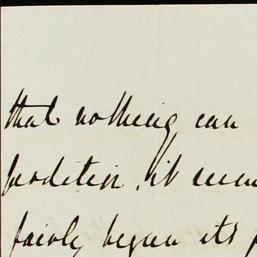 that nothing can
perdition, it
fairly begun its